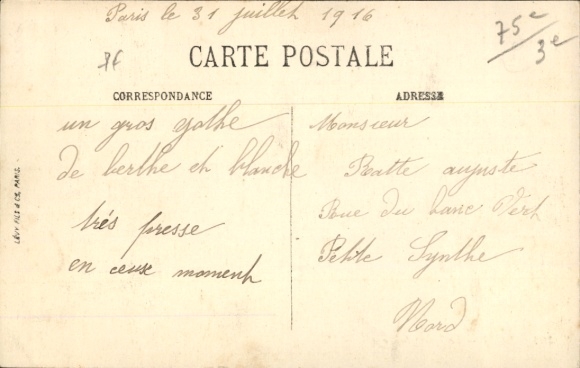 Paris le 31 juillet 1916
75e
3e
CARTE POSTALE
CORRESPONDANCE
ADRESSE
un gros
de berthe et blanche
très presse
en ceuse moment
Monsieur
Ratte auguste
Rue du banc Vert
Petite Synthe
Nord
LÉVY FILS & CIE, PARIS